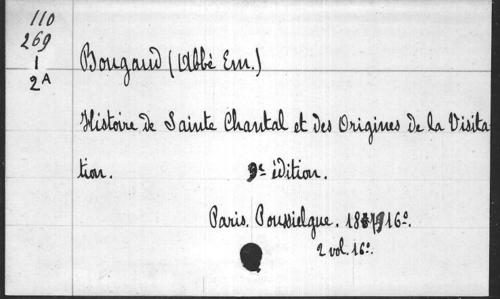 110
269
1
2A
Bougaud (Abbé Em.)
Histoire de Sainte Chantal et des Origines de la Visita
tion. 9e édition.
Paris. Poussielgue. 1879 16º.
2 vol. 16º.